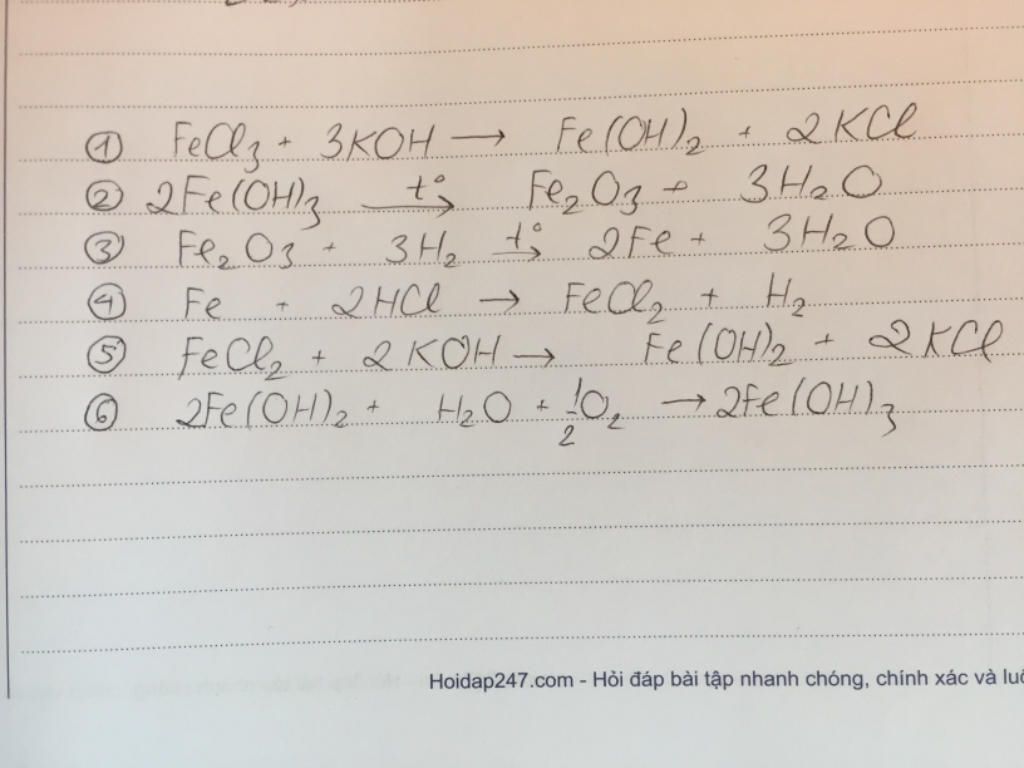 ① FeCl₃ + 3KOH → Fe(OH)₂ + 2KCl
② 2Fe(OH)₃ t° → Fe₂O₃ + 3H₂O
③ Fe₂O₃ + 3H₂ t° → 2Fe + 3H₂O
④ Fe + 2HCl → FeCl₂ + H₂
⑤ FeCl₂ + 2KOH → Fe(OH)₂ + 2KCl
⑥ 2Fe(OH)₂ + H₂O + 1/2 O₂ → 2Fe(OH)₃
Hoidap247.com - Hỏi đáp bài tập nhanh chóng, chính xác và